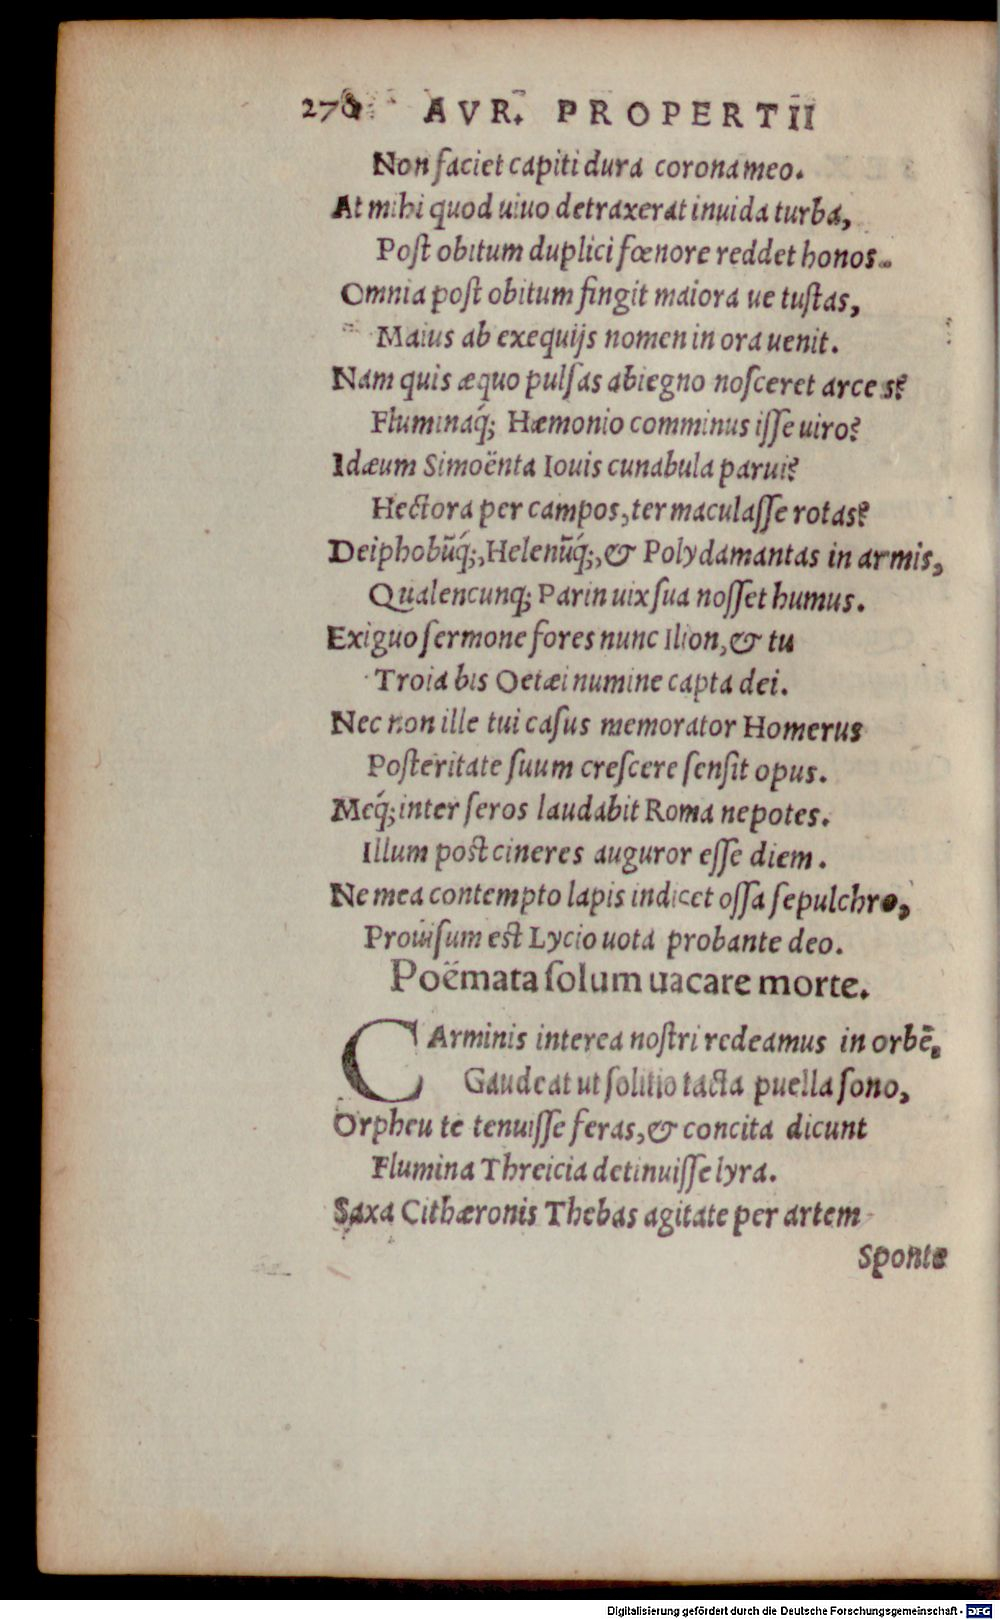 278 AVR. PROPERTII
Non faciet capiti dura corona meo.
At mihi quod uiuo detraxerat inuida turba,
Poſt obitum duplici fœnore reddet honos.
Omnia poſt obitum fingit maiora uetuſtas,
Maius ab exequijs nomen in ora uenit.
Nam quis æquo pulſas abiegno noſceret arces?
Fluminaq́; Hæmonio comminus iſſe uiro?
Idæum Simoënta Iouis cunabula parui?
Hectora per campos, ter maculaſſe rotas?
Deiphobũq́;, Helenũq́;, & Polydamantas in armis,
Qualencunq; Parin uix ſua noſſet humus.
Exiguo ſermone fores nunc Ilion, & tu
Troia bis Oetæi numine capta dei.
Nec non ille tui caſus memorator Homerus
Poſteritate ſuum creſcere ſenſit opus.
Meq́; inter ſeros laudabit Roma nepotes.
Illum poſt cineres auguror eſſe diem.
Ne mea contempto lapis indicet oſſa ſepulchro,
Prouiſum eſt Lycio uota probante deo.
Poëmata ſolum uacare morte.
CArminis interea noſtri redeamus in orbẽ,
Gaudeat ut ſolitio tacta puella ſono,
Orpheu te tenuiſſe feras, & concita dicunt
Flumina Threicia detinuiſſe lyra.
Saxa Cithæronis Thebas agitate per artem
Sponte
Digitalisierung gefördert durch die Deutsche Forschungsgemeinschaft - DFG